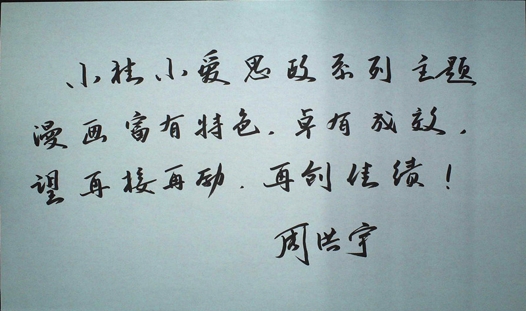 小桂小爱思政系列主题
漫画富有特色，卓有成效，
望再接再励，再创佳绩！
周洪宇